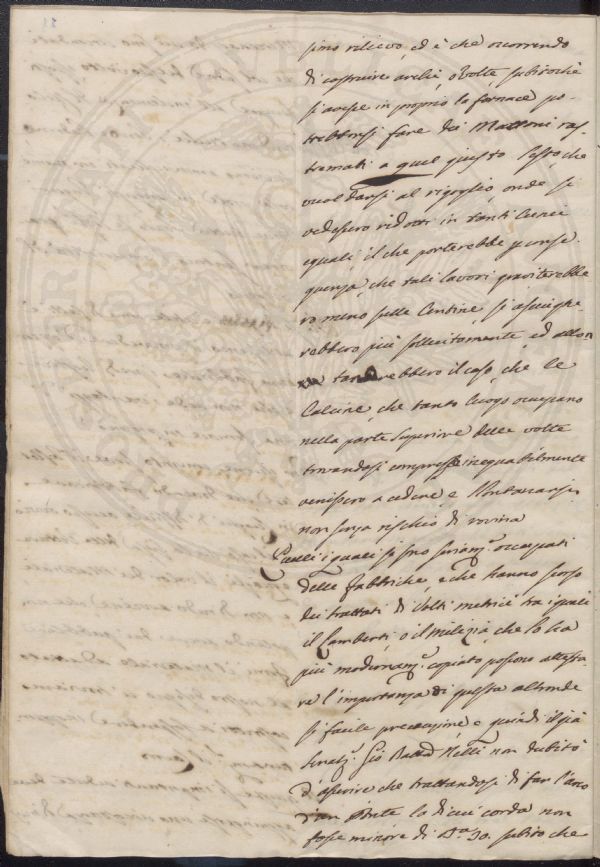 simo rilievo, ed è che ocorrendo
di costruire archi, o Volte subitochè
si avesse in proprio la fornace po-
trebbesi fare dei Mattoni ras-
tremati a quel giusto sesto che
vuol darsi al rigoglio, onde si
vedessero ridotti in tanti Cunei
eguali, il che porterebbe p conse-
guenza che tali lavori graviterebbe
ro meno sulle Centine, si asciughe-
rebbero più sollecitamente, ed allon
tanerebbero il caso, che le
Calcine, che tanto luogo occupano
nella parte superiore delle volte
trovandosi compresse inegualmente
venissero a cedere, e
non senza rischio di rovina
Quelli i quali si sono seriam.e occupati
delle fabbriche, e che hanno scorso
dei trattati di tra i quali
il Lamberti, o il Milizia, che lo ha
più modernam.e copiato possono attesta
re l'importanza di questa altronde
si facile precauzione, e quindi il già
Senat.e Gio Batta Nelli non dubitò
d'asserire che trattandosi di far l'arco
d'un Ponte la di cui corda non
fosse minore di B.a 30. subito che